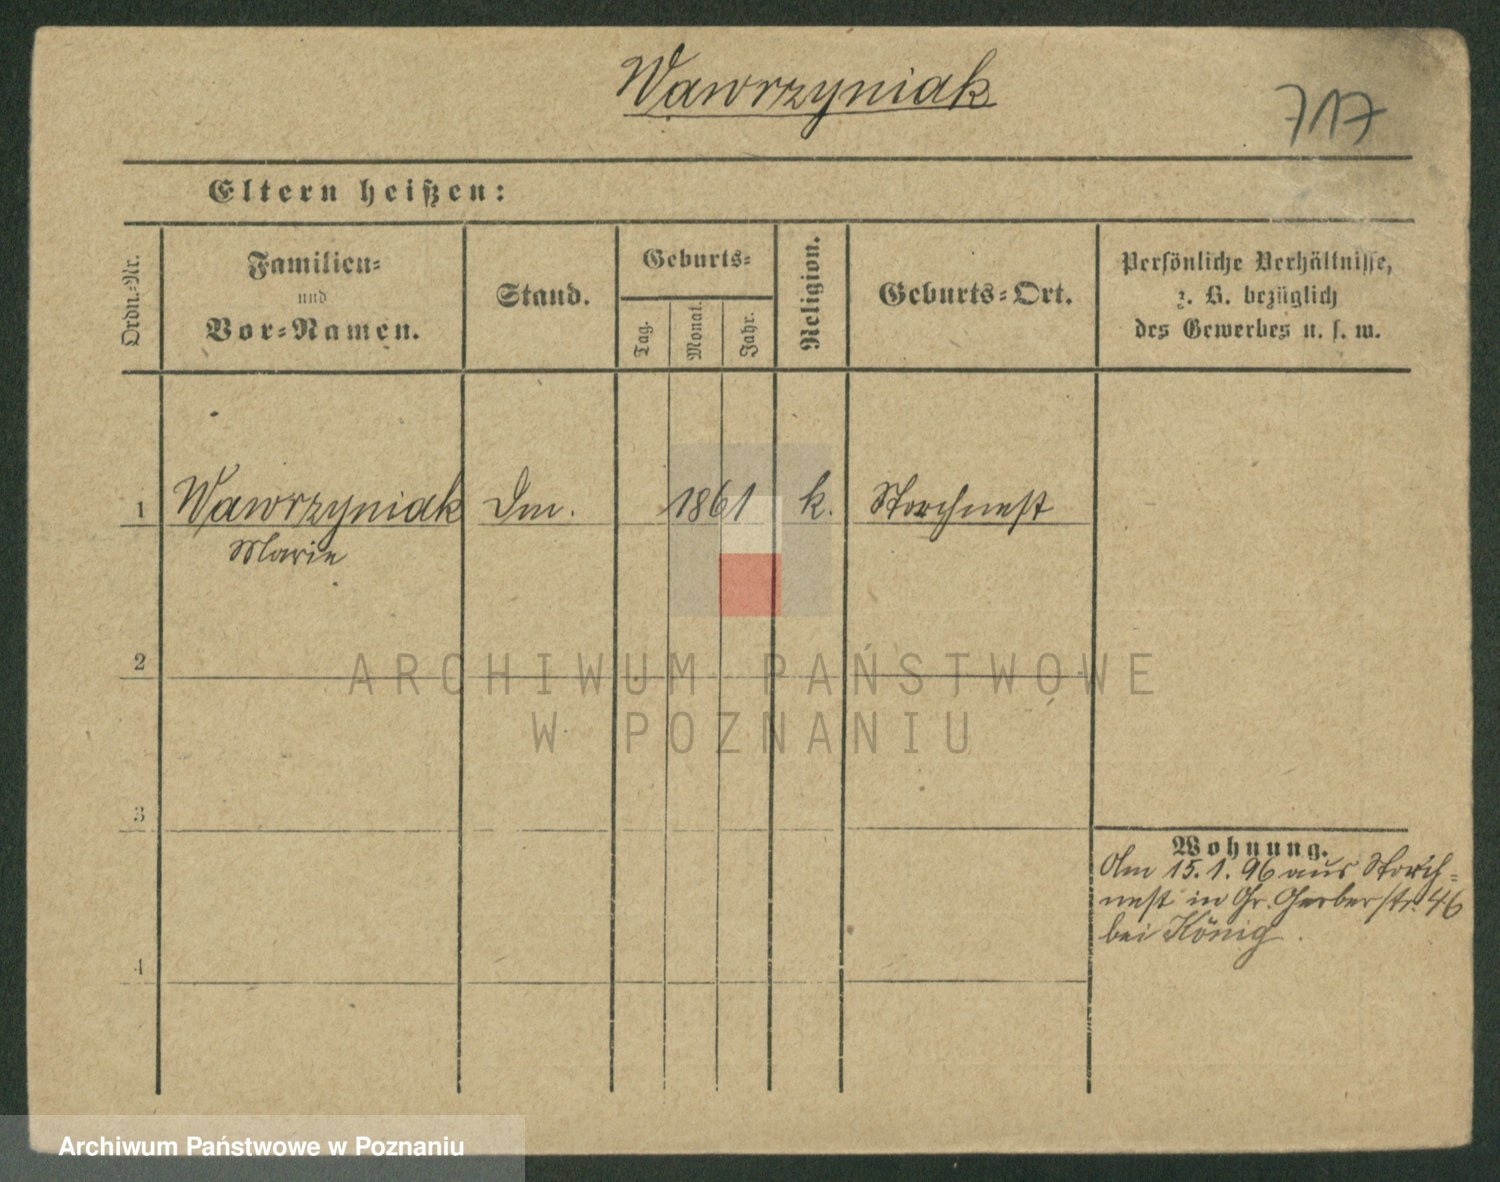 Wawrzyniak
717
Eltern heißen:
Ordn.-Nr.
Familien-
und
Vor-Namen.
Stand.
Geburts-
Tag.
Monat.
Jahr.
Religion.
Geburts-Ort.
Persönliche Verhältnisse,
z. B. bezüglich
des Gewerbes u. s. w.
1 Wawrzyniak Dm. 1861 k. Storchnest
Marie
2
ARCHIWUM PAŃSTWOWE
W POZNANIU
3
Wohnung.
Am 15.1.96 aus Storch-
nest in Gr. Gerberstr. 46
bei König.
4
Archiwum Państwowe w Poznaniu